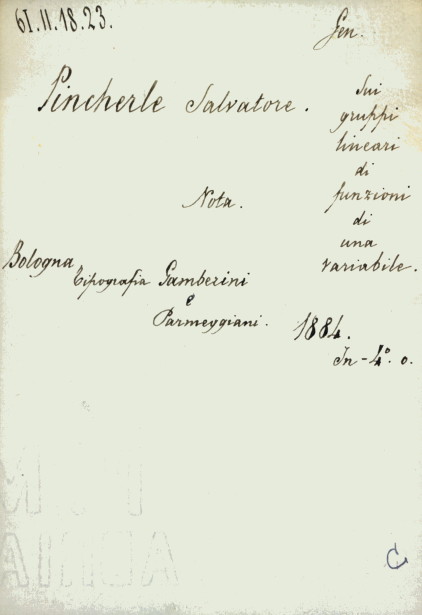 61.II.18.23.
Gen.
Pincherle Salvatore.
Sui
gruppi
lineari
di
funzioni
di
una
variabile.
Nota.
Bologna
Tipografia Gamberini
e
Parmeggiani.
1884.
In-4°. o.
C